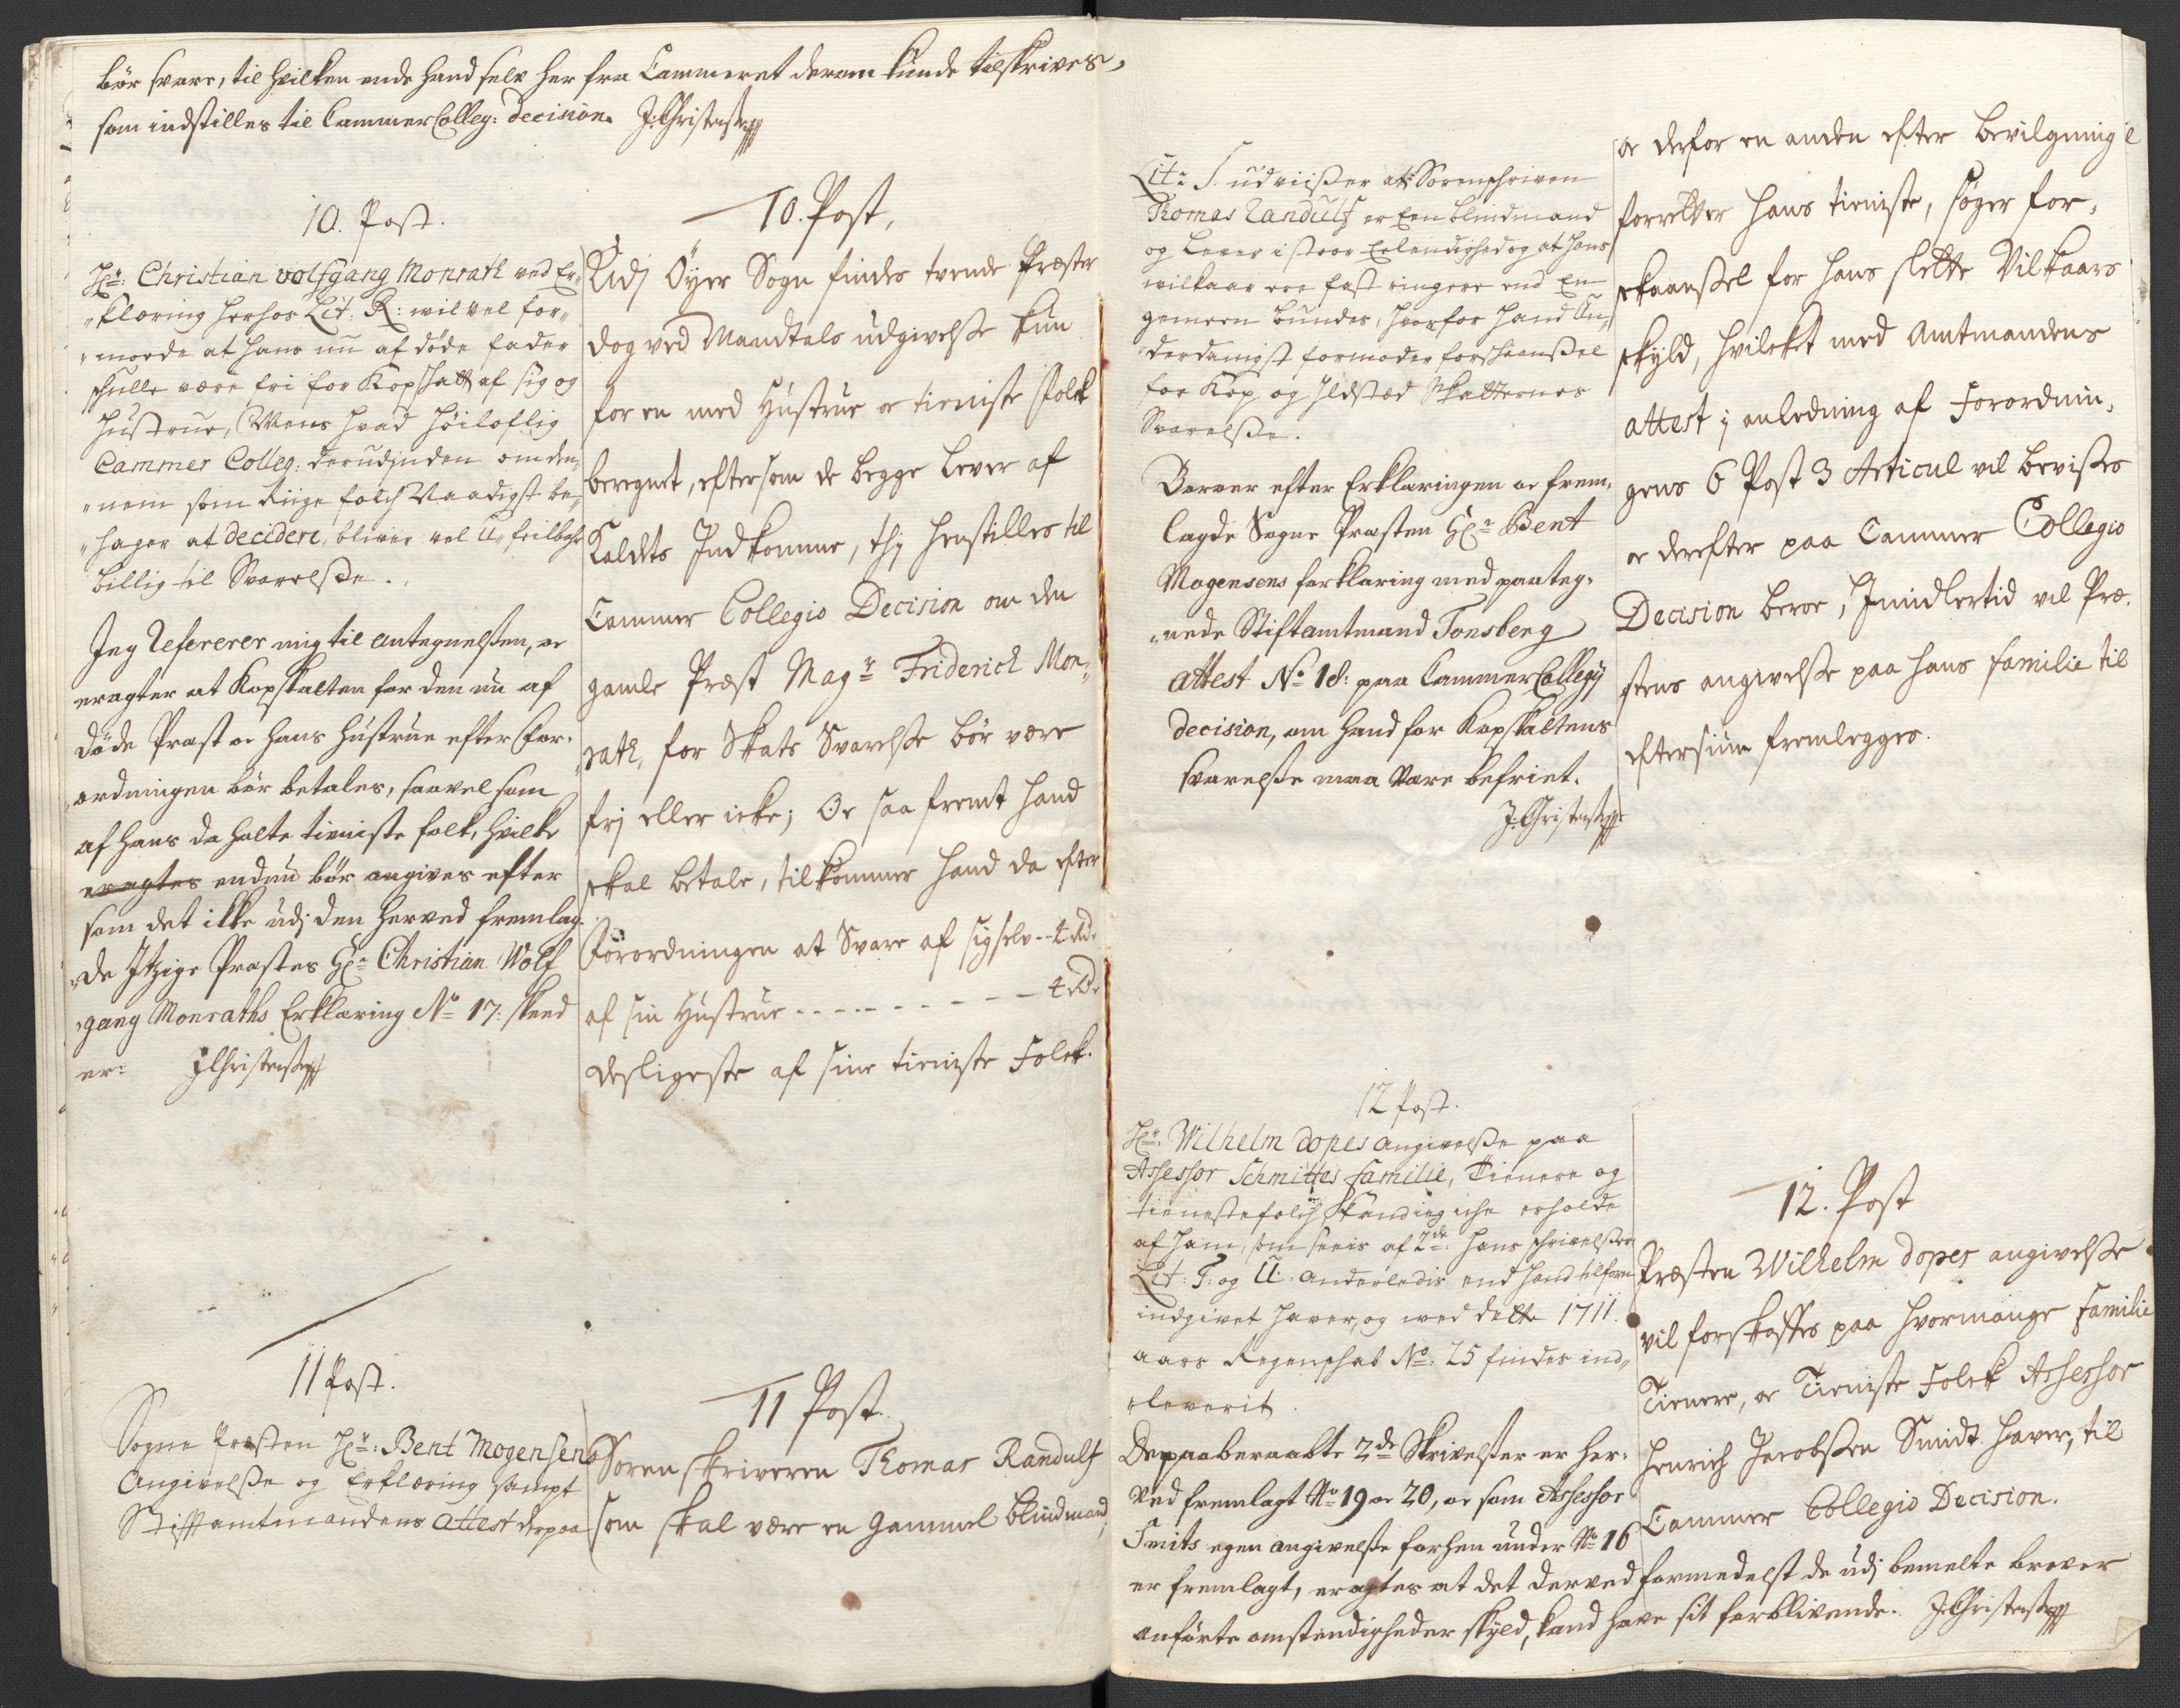 bör svare, til hvilken ende hand selv her fra Cammeret derom kunde tilskrives,
som indstilles til Cammer Colleg: decision. J: Christens
10. Post.
Hr: Christian Wolfgang Monrath ved Er„
„klæring herhos Lit: R: vil vel for„
„moede at hans nu af døde fader
schulle være fri for Kopschatt af sig og
Hustrue, Mens hvad höiloflig
Cammer Colleg: derudjnden om den„
„nem som Ringe folch Naadigst be„
„hager at decidere, bliver vel U„feilbahr
billig til Svarelsse.
Jeg Refererer mig til antegnelsen, oc
eragter at Kopskatten for den nu af
døde Præst oc hans Hustrue efter For„
„ordningen bör betales, saavel som
af hans da hafte tieniste folk, hvilke
eragtes endnu bör angives efter
som det ikke udj den herved fremlag„
„de Itzige Præstes Hr. Christian Wolf
„gang Monraths Erklæring No 17: skeed
er: J Christens
10. Post,
Udj Öyer Sogn findes tvende Præster
dog ved Mandtals udgivelse kun
for en med Hustrue oc tieniste Folck
beregnet, eftersom de begge lever af
Kaldets Indkomme, thj henstilles til
Cammer Collegio Decision om den
gamle Præst Magr Friderich Mon„
rath, for Skats Svarelse bör være
frj eller icke; Oc saa fremt hand
skal betale, tilkommer hand da efter
Forordningen at Svare af sig selv -- 4 rdr
af sin Hustrue - - - - - - - - - 4 rdr
desligeste af sine tieniste Folck.
11 Post.
Sogne Præsten Hr: Bent Mogensens
Angivelsse og Erklæring sampt
Stifftamtmandens attest derpaa
11 Post.
Sorenskriveren Thomas Randulf
som skal være en gammel blindmand,
Litr S. udviisser at Sorenschriven
Thomas Randulf er Een blindmand
og Lever i stoor Elendighed og at hans
vilkaar ere fast ringere end En
gemeen bundes, hvorfor hand Un„
„derdanigst formoder forschaansel
for Kop og Ildsted Skatternes
Svarelsse.
Berører efter Erklæringen oc frem„
lagde Sogne Præsten Hr. Bent
Mogensens forklaring med paateg„
„nede Stiftamtmand Tonsberg
attest No 18: paa Cammer Collegij
decision, om hand for Kopskattens
svarelsse maa være befriet.
J: Christens
oc derfor en anden efter bevilgning
forretter hans tieniste, söger for„
skaansel for hans slette Vilkaars
skyld, hvilcket med Amtmandens
attest j anledning af Forordnin„
gens 6 Post 3 Articul vil bevisses
oc derefter paa Cammer Collegio
Decision beroe, Imidlertid vil Præ„
stens angivelse paa hans familie til
eftersiun fremlegges.
12 Post.
Hr: Wilhelm dopes angivelsse paa
Assessor Schmittes familie, Tienere og
tienestefolch, kand ieg iche erholde
af ham, som sees af 2de hans schrivelsser
Lit: T: og U: anderledis end hand tilforn
indgivet haver, og med dette 1711.
aars Regenschab No: 25 findes ind„
„leverit.
De paaberaabte 2de Skrivelsser er her„
ved fremlagt No 19 oc 20, oc som Assessor
Smits egen angivelsse forhen under No 16
er fremlagt, eragtes at det derved formedelst de udj bemelte brever
anförte omstendigheder skyld, kand have sit forblivende. J: Christens
12. Post
Præsten Wilhelm dopes angivelsse
vil forskaffes paa hvormange familie
Tienere, oc Tieniste Folck Assessor
Henrich Jacobssen Smidt haver, til
Cammer Collegio Decision.